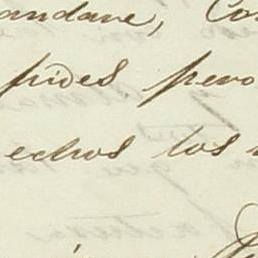 andare, Co
pides pero
echos los